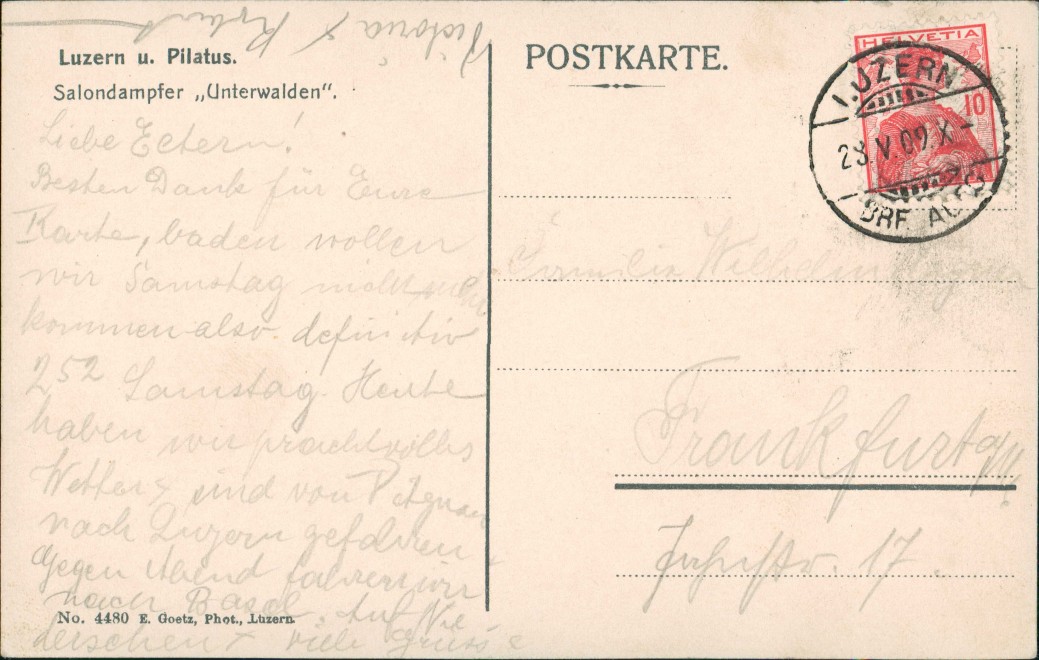 Victoria & Robert
Luzern u. Pilatus.
Salondampfer „Unterwalden“.
Liebe Eltern!
Besten Dank für Eure
Karte, baden wollen
wir Samstag nicht
kommen also definitiv
2 52 Samstag. Heute
haben wir prachtvolles
Wetter & sind von
nach Luzern gefahren
Gegen Abend fahren wir
nach Basel. Auf Wie
dersehen & viele Grüsse
No. 4480 E. Goetz, Phot., Luzern.
POSTKARTE.
HELVETIA
10
LUZERN
28.V.09.X-
BRF.
Familie Wilhelm
Frankfurt a/M
Jahnstr. 17.